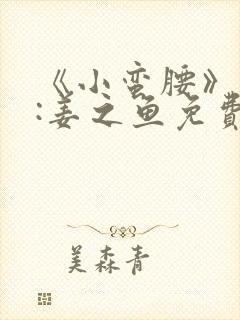 《小蛮腰》
:姜之鱼免費
美森青